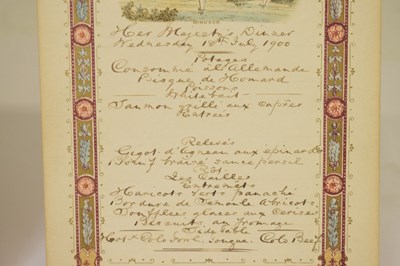 WINDSOR
Her Majesty's Dinner
Wednesday 18th July 1900
Potages
Consommé à l'Allemande
Bisque de Homard
Poissons
Whitebait
Saumon grillé aux Câpres
Entrées
Relevés
Gigot d'Agneau aux épinards
Boeuf braisé sauce persil
Rôt
Les Cailles
Entremêts
Haricots verts panaché
Bordure de Semoule Abricots
Soufflées glacés aux Cerises
Biscuits au fromage
Side table
Hot & Cold Fowl. Tongue. Cold Beef